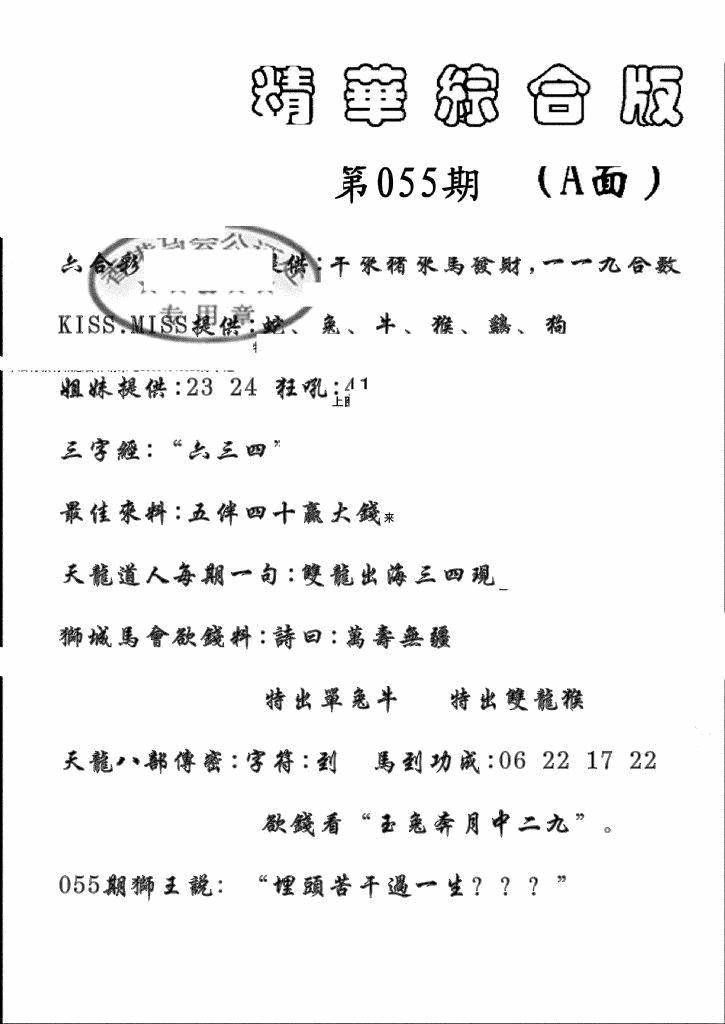 精華綜合版
第055期 （A面）
六合彩 提供:平來豬來馬發財,一一九合數
专用章
KISS.MISS提供:蛇、兔、牛、猴、鷄、狗
姐妹提供:23 24 狂吼:41
三字經:“六三四”
最佳來料:五伴四十贏大錢来
天龍道人每期一句:雙龍出海三四現
獅城馬會欲錢料:詩曰:萬壽無疆
特出單兔牛 特出雙龍猴
天龍八部傳密:字符:到 馬到功成:06 22 17 22
欲錢看“玉兔奔月中二九”。
055期獅王説: “埋頭苦干過一生? ? ?”